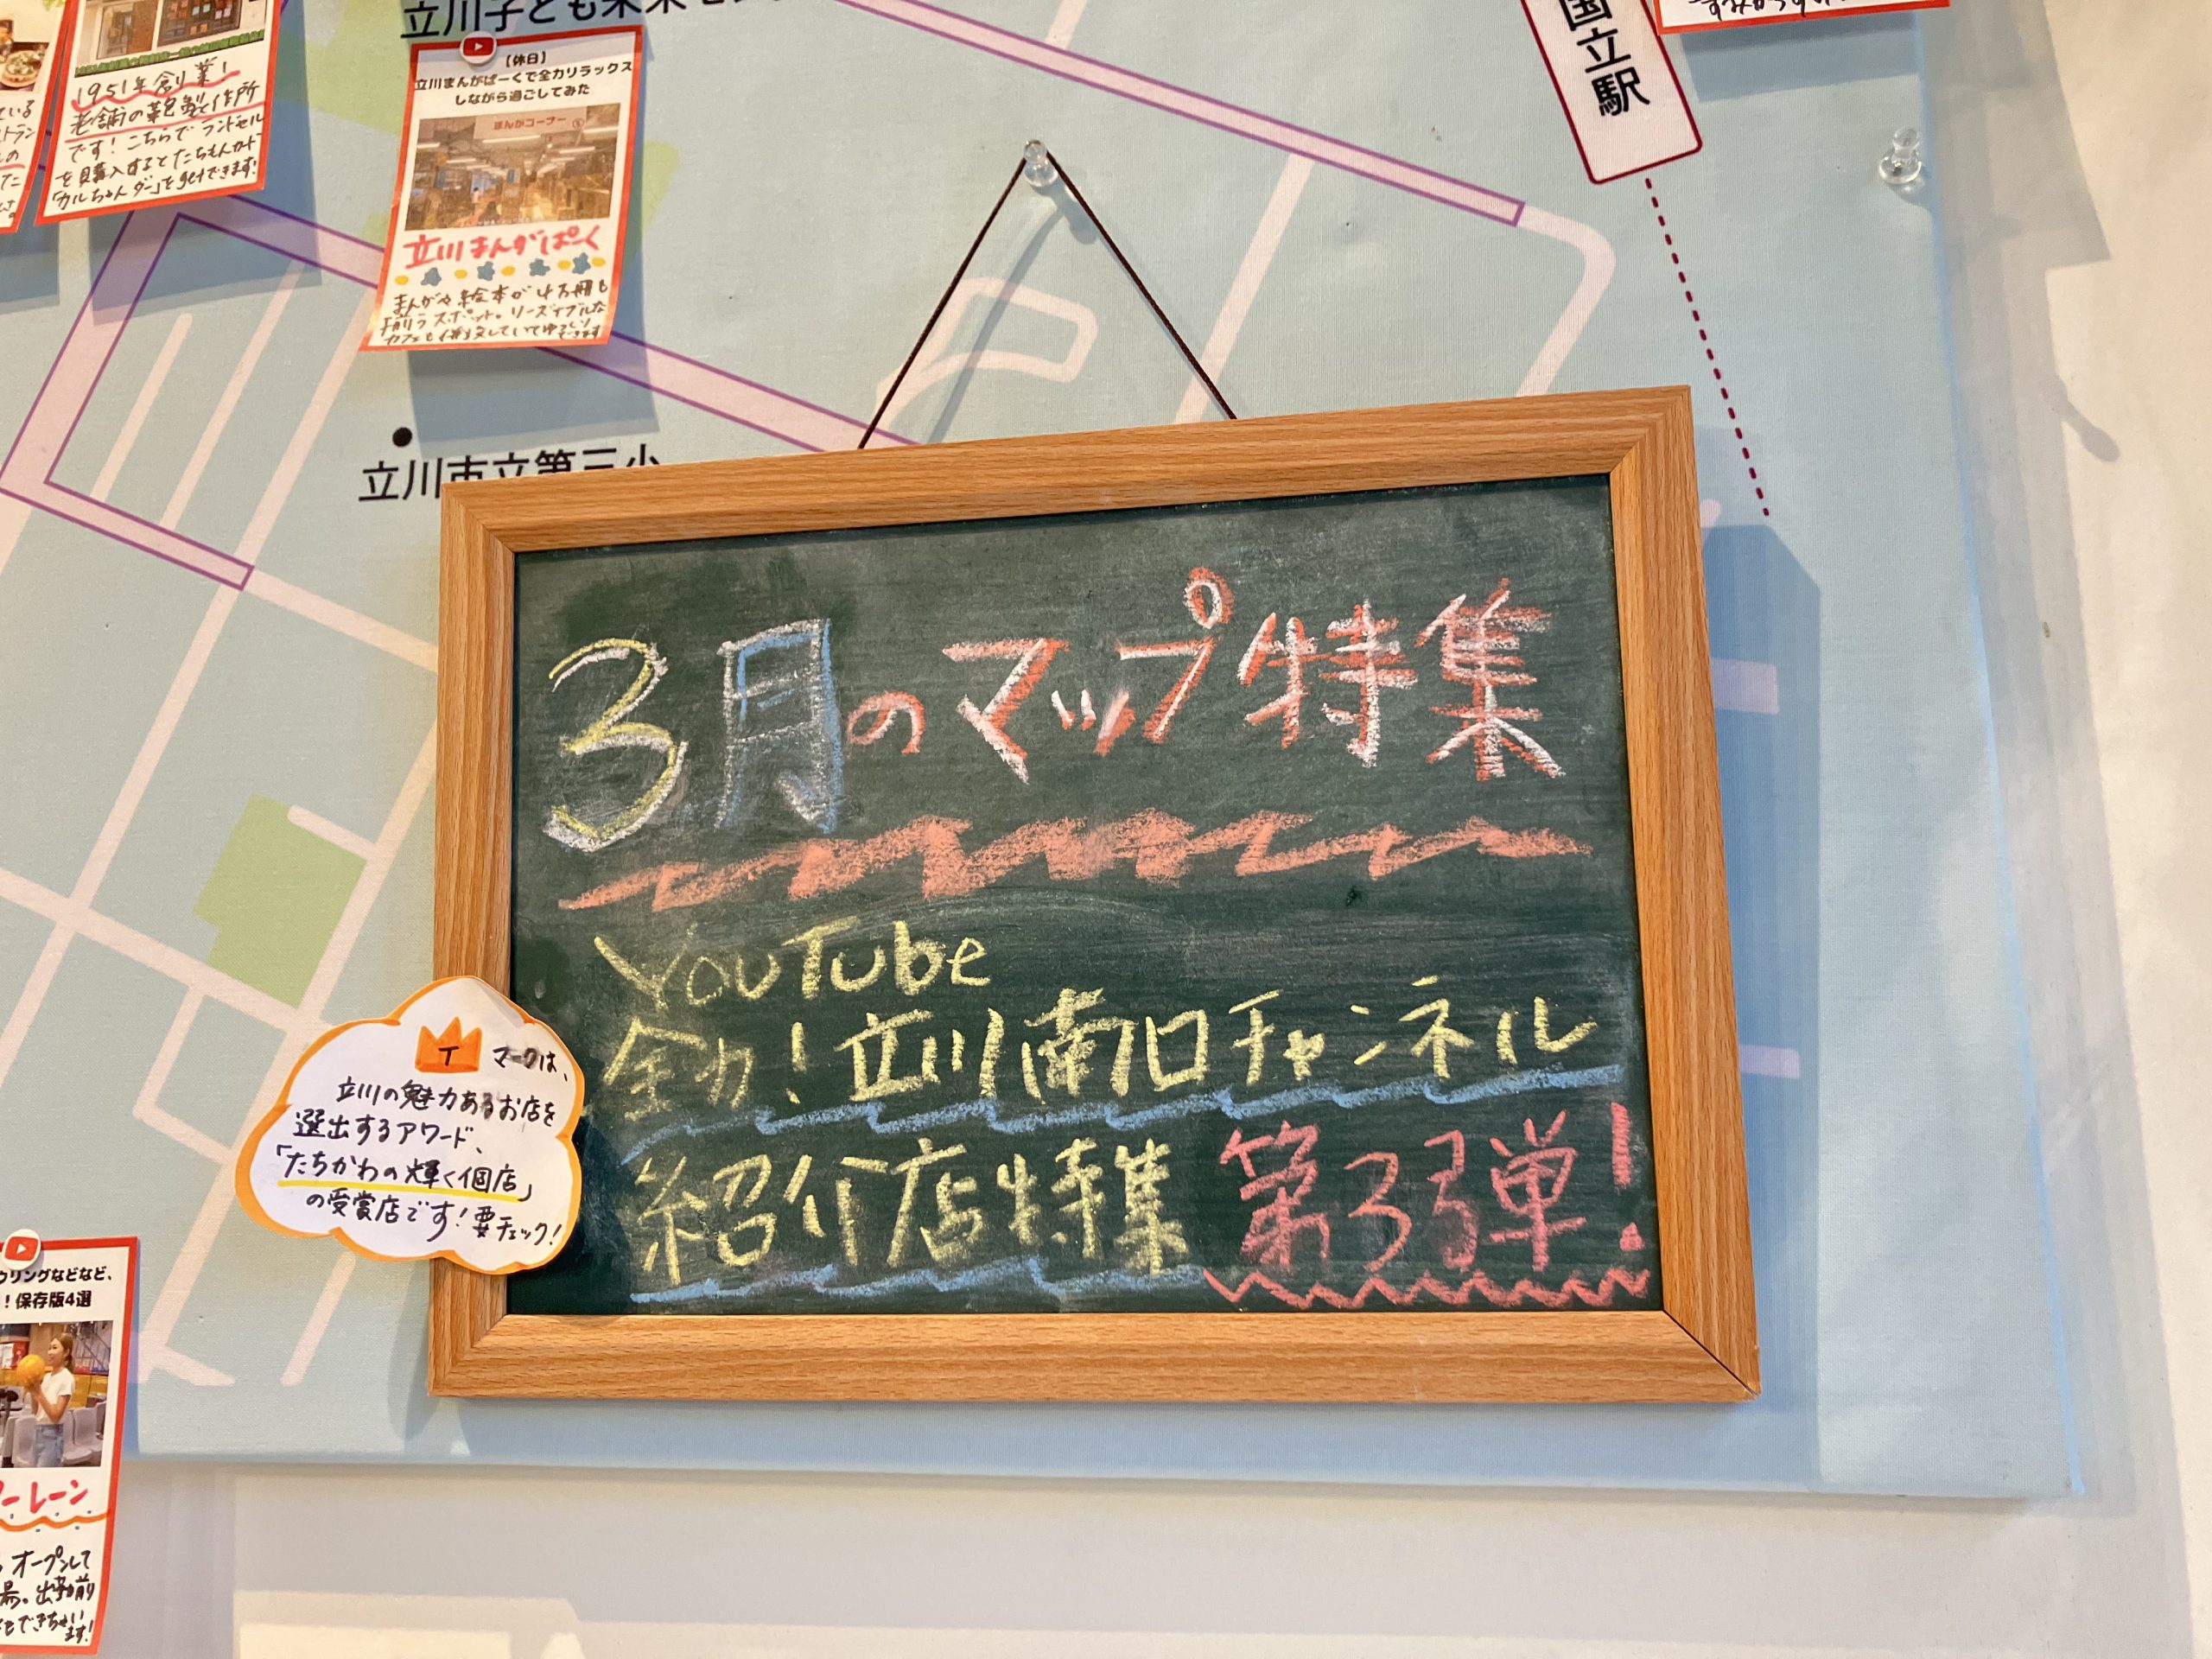 立川子ども未来
国立駅
1951年創業！
老舗の鞄製作所
です！こちらでランドセル
を購入するとたちもんカード
「カルちゃんダー」をgetできます！
【休日】
立川まんがぱーくで全力リラックス
しながら過ごしてみた
まんがコーナー
立川まんがぱーく
まんがや絵本が4万冊も
スポット。リーズナブルな
カフェも併設していてゆるりできます
立川市立第三小
3月のマップ特集
YouTube
全力！立川南口チャンネル
紹介店特集 第3弾！
T マークは、
立川の魅力あるお店を
選出するアワード、
「たちかわの輝く個店」
の受賞店です！要チェック！
ウリングなどなど、
！保存版4選
ーレーン
オープンして
出勤前
もできちゃい
ます！